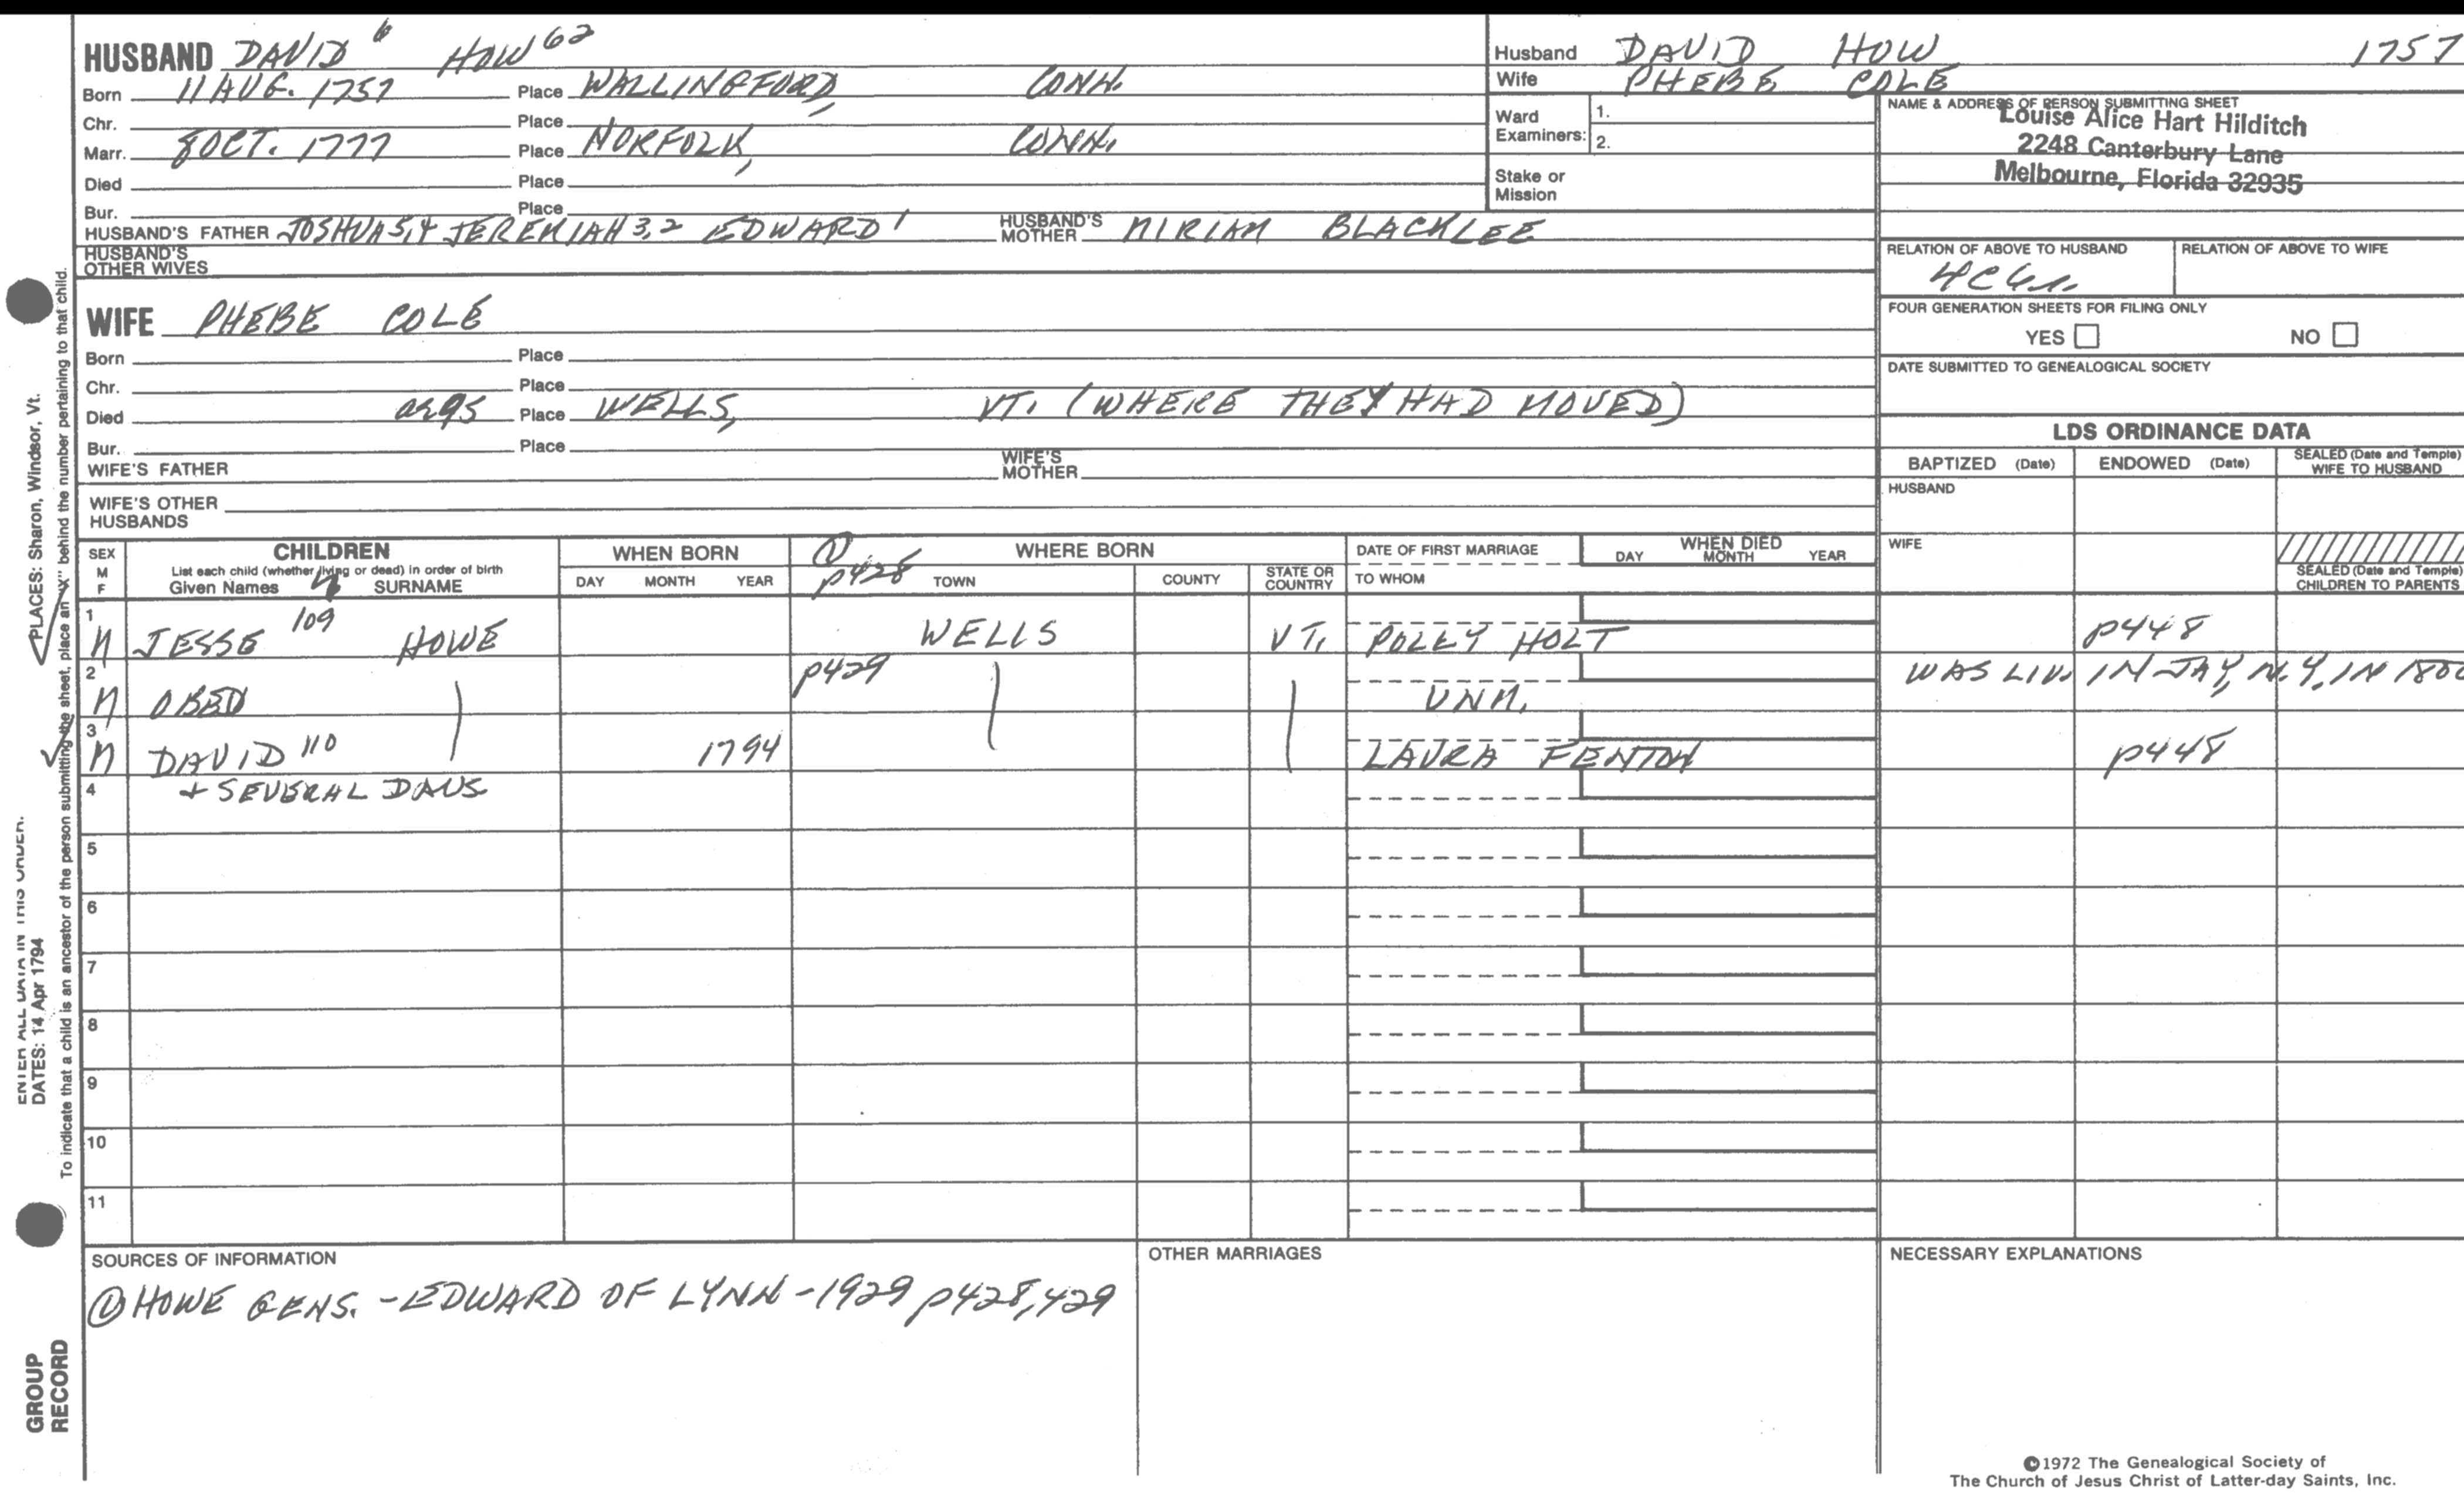 HUSBAND DAVID 6 HOW 62
Born 11 AUG. 1757 Place WALLINGFORD, CONN.
Chr. Place
Marr. 8 OCT. 1777 Place NORFOLK, CONN.
Died Place
Bur. Place
HUSBAND'S FATHER JOSHUA 5,4 JEREMIAH 3,2 EDWARD 1 HUSBAND'S MOTHER MIRIAM BLACKLEE
HUSBAND'S OTHER WIVES
WIFE PHEBE COLE
Born Place
Chr. Place
Died a 95 Place WELLS, VT. (WHERE THEY HAD MOVED)
Bur. Place
WIFE'S FATHER WIFE'S MOTHER
WIFE'S OTHER HUSBANDS
Husband DAVID HOW 1757
Wife PHEBE COLE
Ward Examiners: 1.
2.
Stake or Mission
NAME & ADDRESS OF PERSON SUBMITTING SHEET
Louise Alice Hart Hilditch
2248 Canterbury Lane
Melbourne, Florida 32935
RELATION OF ABOVE TO HUSBAND RELATION OF ABOVE TO WIFE
FOUR GENERATION SHEETS FOR FILING ONLY
YES NO
DATE SUBMITTED TO GENEALOGICAL SOCIETY
LDS ORDINANCE DATA
BAPTIZED (Date) ENDOWED (Date) SEALED (Date and Temple) WIFE TO HUSBAND
HUSBAND
WIFE
SEALED (Date and Temple) CHILDREN TO PARENTS
SEX M F
CHILDREN
List each child (whether living or dead) in order of birth
Given Names SURNAME
WHEN BORN
DAY MONTH YEAR
① p428
WHERE BORN
TOWN COUNTY STATE OR COUNTRY
DATE OF FIRST MARRIAGE
TO WHOM
WHEN DIED
DAY MONTH YEAR
1 M JESSE 109 HOWE WELLS VT. POLLY HOLT p448
2 M OBED p429 UNM. WAS LIV. IN JAY, N.Y. IN
3 M DAVID 110 1794 LAURA FENTON p448
4 + SEVERAL DAUS
5
6
7
8
9
10
11
SOURCES OF INFORMATION
① HOWE GENS. - EDWARD OF LYNN - 1929 p428,429
OTHER MARRIAGES
NECESSARY EXPLANATIONS
©1972 The Genealogical Society of
The Church of Jesus Christ of Latter-day Saints, Inc.
PLACES: Sharon, Windsor, Vt.
ENTER ALL DATA IN THIS ORDER:
DATES: 14 Apr 1794
To indicate that a child is an ancestor of the person submitting the sheet, place an "X" behind the number pertaining to that child.
GROUP
RECORD